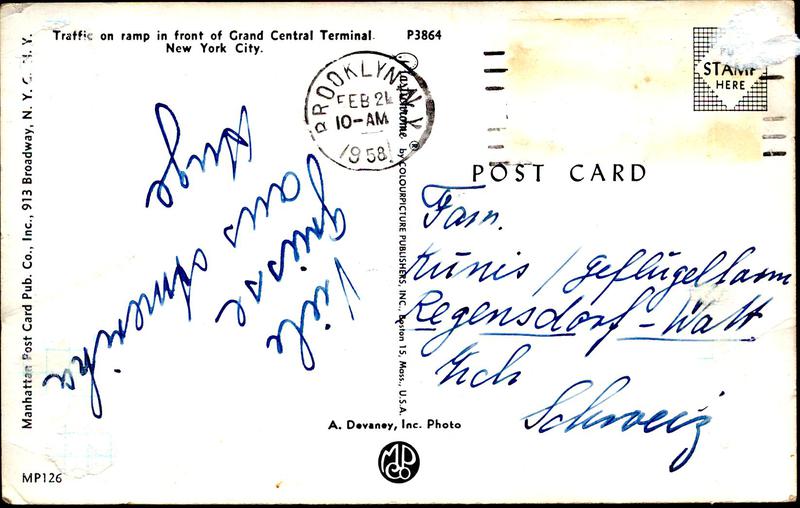 Traffic on ramp in front of Grand Central Terminal.
New York City.
P3864
BROOKLYN, N.Y.
FEB 21
10-AM
1958
STAMP
HERE
POST CARD
Viele
grüsse
aus
Amerika
Fam.
Kunis / Geflügelfarm
Regensdorf - Watt
Zch
Schweiz
Manhattan Post Card Pub. Co., Inc., 913 Broadway, N. Y. C. N. Y.
Plastichrome ® by COLOURPICTURE PUBLISHERS, INC., Boston 15, Mass., U.S.A.
A. Devaney, Inc. Photo
MP
CO
MP126